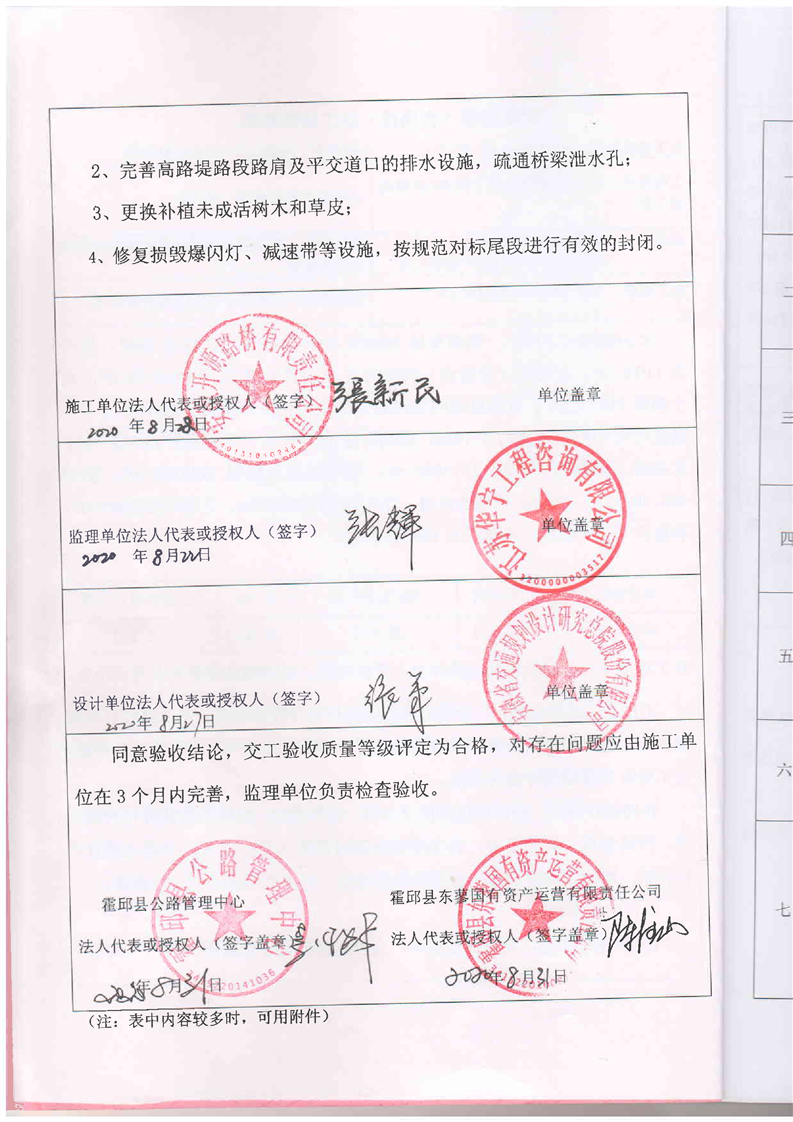 2、完善高路堤路段路肩及平交道口的排水设施，疏通桥梁泄水孔；
3、更换补植未成活树木和草皮；
4、修复损毁爆闪灯、减速带等设施，按规范对标尾段进行有效的封闭。
开源路桥有限责任公司
施工单位法人代表或授权人（签字）張新民
单位盖章
2020年8月28日
江苏华宁工程咨询有限公司
3200000003512
监理单位法人代表或授权人（签字）
单位盖章
2020年8月22日
安徽省交通规划设计研究总院股份有限公司
设计单位法人代表或授权人（签字）
单位盖章
2020年8月27日
同意验收结论，交工验收质量等级评定为合格，对存在问题应由施工单
位在3个月内完善，监理单位负责检查验收。
霍邱县公路管理中心
霍邱县公路管理中心
法人代表或授权人（签字盖章）
年8月31日
霍邱县东蓼国有资产运营有限责任公司
霍邱县东蓼国有资产运营有限责任公司
法人代表或授权人（签字盖章）
2020年8月31日
（注：表中内容较多时，可用附件）
三
四
五
六
七